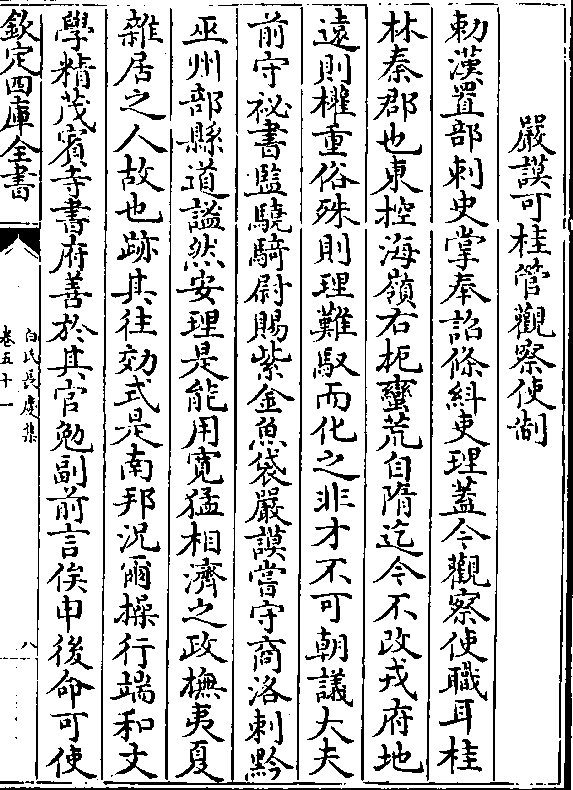 嚴謨可桂管觀察使制
勅漢置部刺史掌奉詔條糾吏理蓋今觀察使職耳桂
林秦郡也東控海嶺右扼蠻荒自隋迄今不改戎府地
遠則權重俗殊則理難馭而化之非才不可朝議大夫
前守祕書監驍騎尉賜紫金魚袋嚴謨嘗守商洛刺黔
巫州部縣道謐然安理是能用寛猛相濟之政撫夷夏
雜居之人故也跡其徃効式是南邦況爾操行端和文
學精茂賓寺書府善於其官勉副前言俟申後命可使
欽定四庫全書
白氏長慶集
卷五十一
八